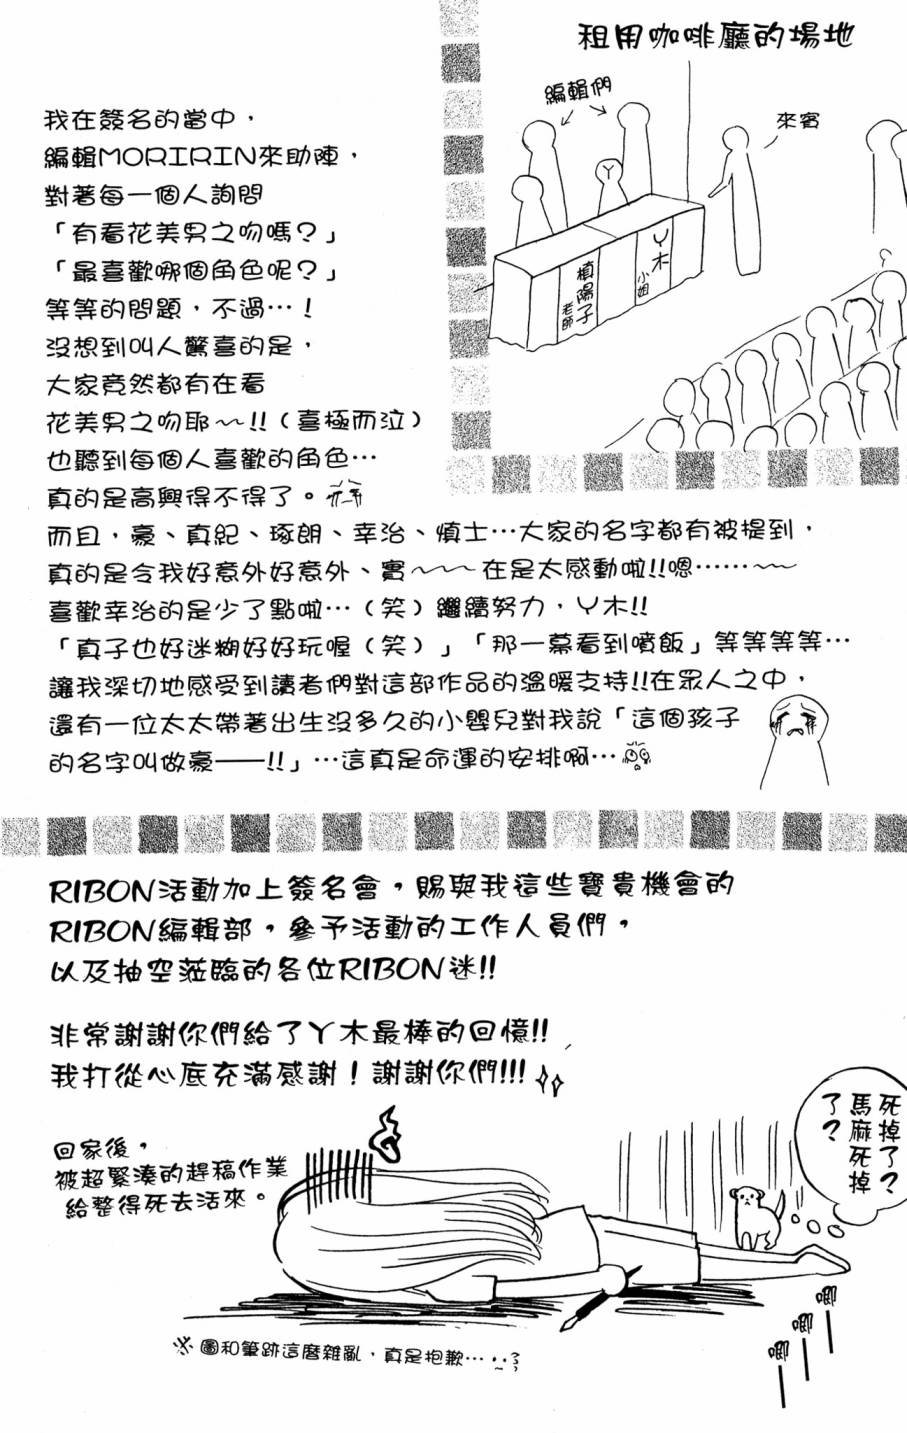 租用咖啡廳的場地
編輯們
來賓
槙陽子
老師
ㄚ木
小姐
我在簽名的當中，
編輯MORIRIN來助陣，
對著每一個人詢問
「有看花美男之吻嗎？」
「最喜歡哪個角色呢？」
等等的問題，不過…！
沒想到叫人驚喜的是，
大家竟然都有在看
花美男之吻耶～～!!（喜極而泣）
也聽到每個人喜歡的角色…
真的是高興得不得了。
而且，豪、真紀、琢朗、幸治、慎士…大家的名字都有被提到，
真的是令我好意外好意外、實～～～在是太感動啦!!嗯……～～
喜歡幸治的是少了點啦…（笑）繼續努力，ㄚ木!!
「真子也好迷糊好好玩喔（笑）」「那一幕看到噴飯」等等等等…
讓我深切地感受到讀者們對這部作品的溫暖支持!!在眾人之中，
還有一位太太帶著出生沒多久的小嬰兒對我說「這個孩子
的名字叫做豪——!!」…這真是命運的安排啊…
RIBON活動加上簽名會，賜與我這些寶貴機會的
RIBON編輯部，參予活動的工作人員們，
以及抽空蒞臨的各位RIBON迷!!
非常謝謝你們給了ㄚ木最棒的回憶!!
我打從心底充滿感謝！謝謝你們!!!
回家後，
被超緊湊的趕稿作業
給整得死去活來。
死掉了？
馬麻死掉
了？
唧
唧
唧
※圖和筆跡這麼雜亂，真是抱歉…